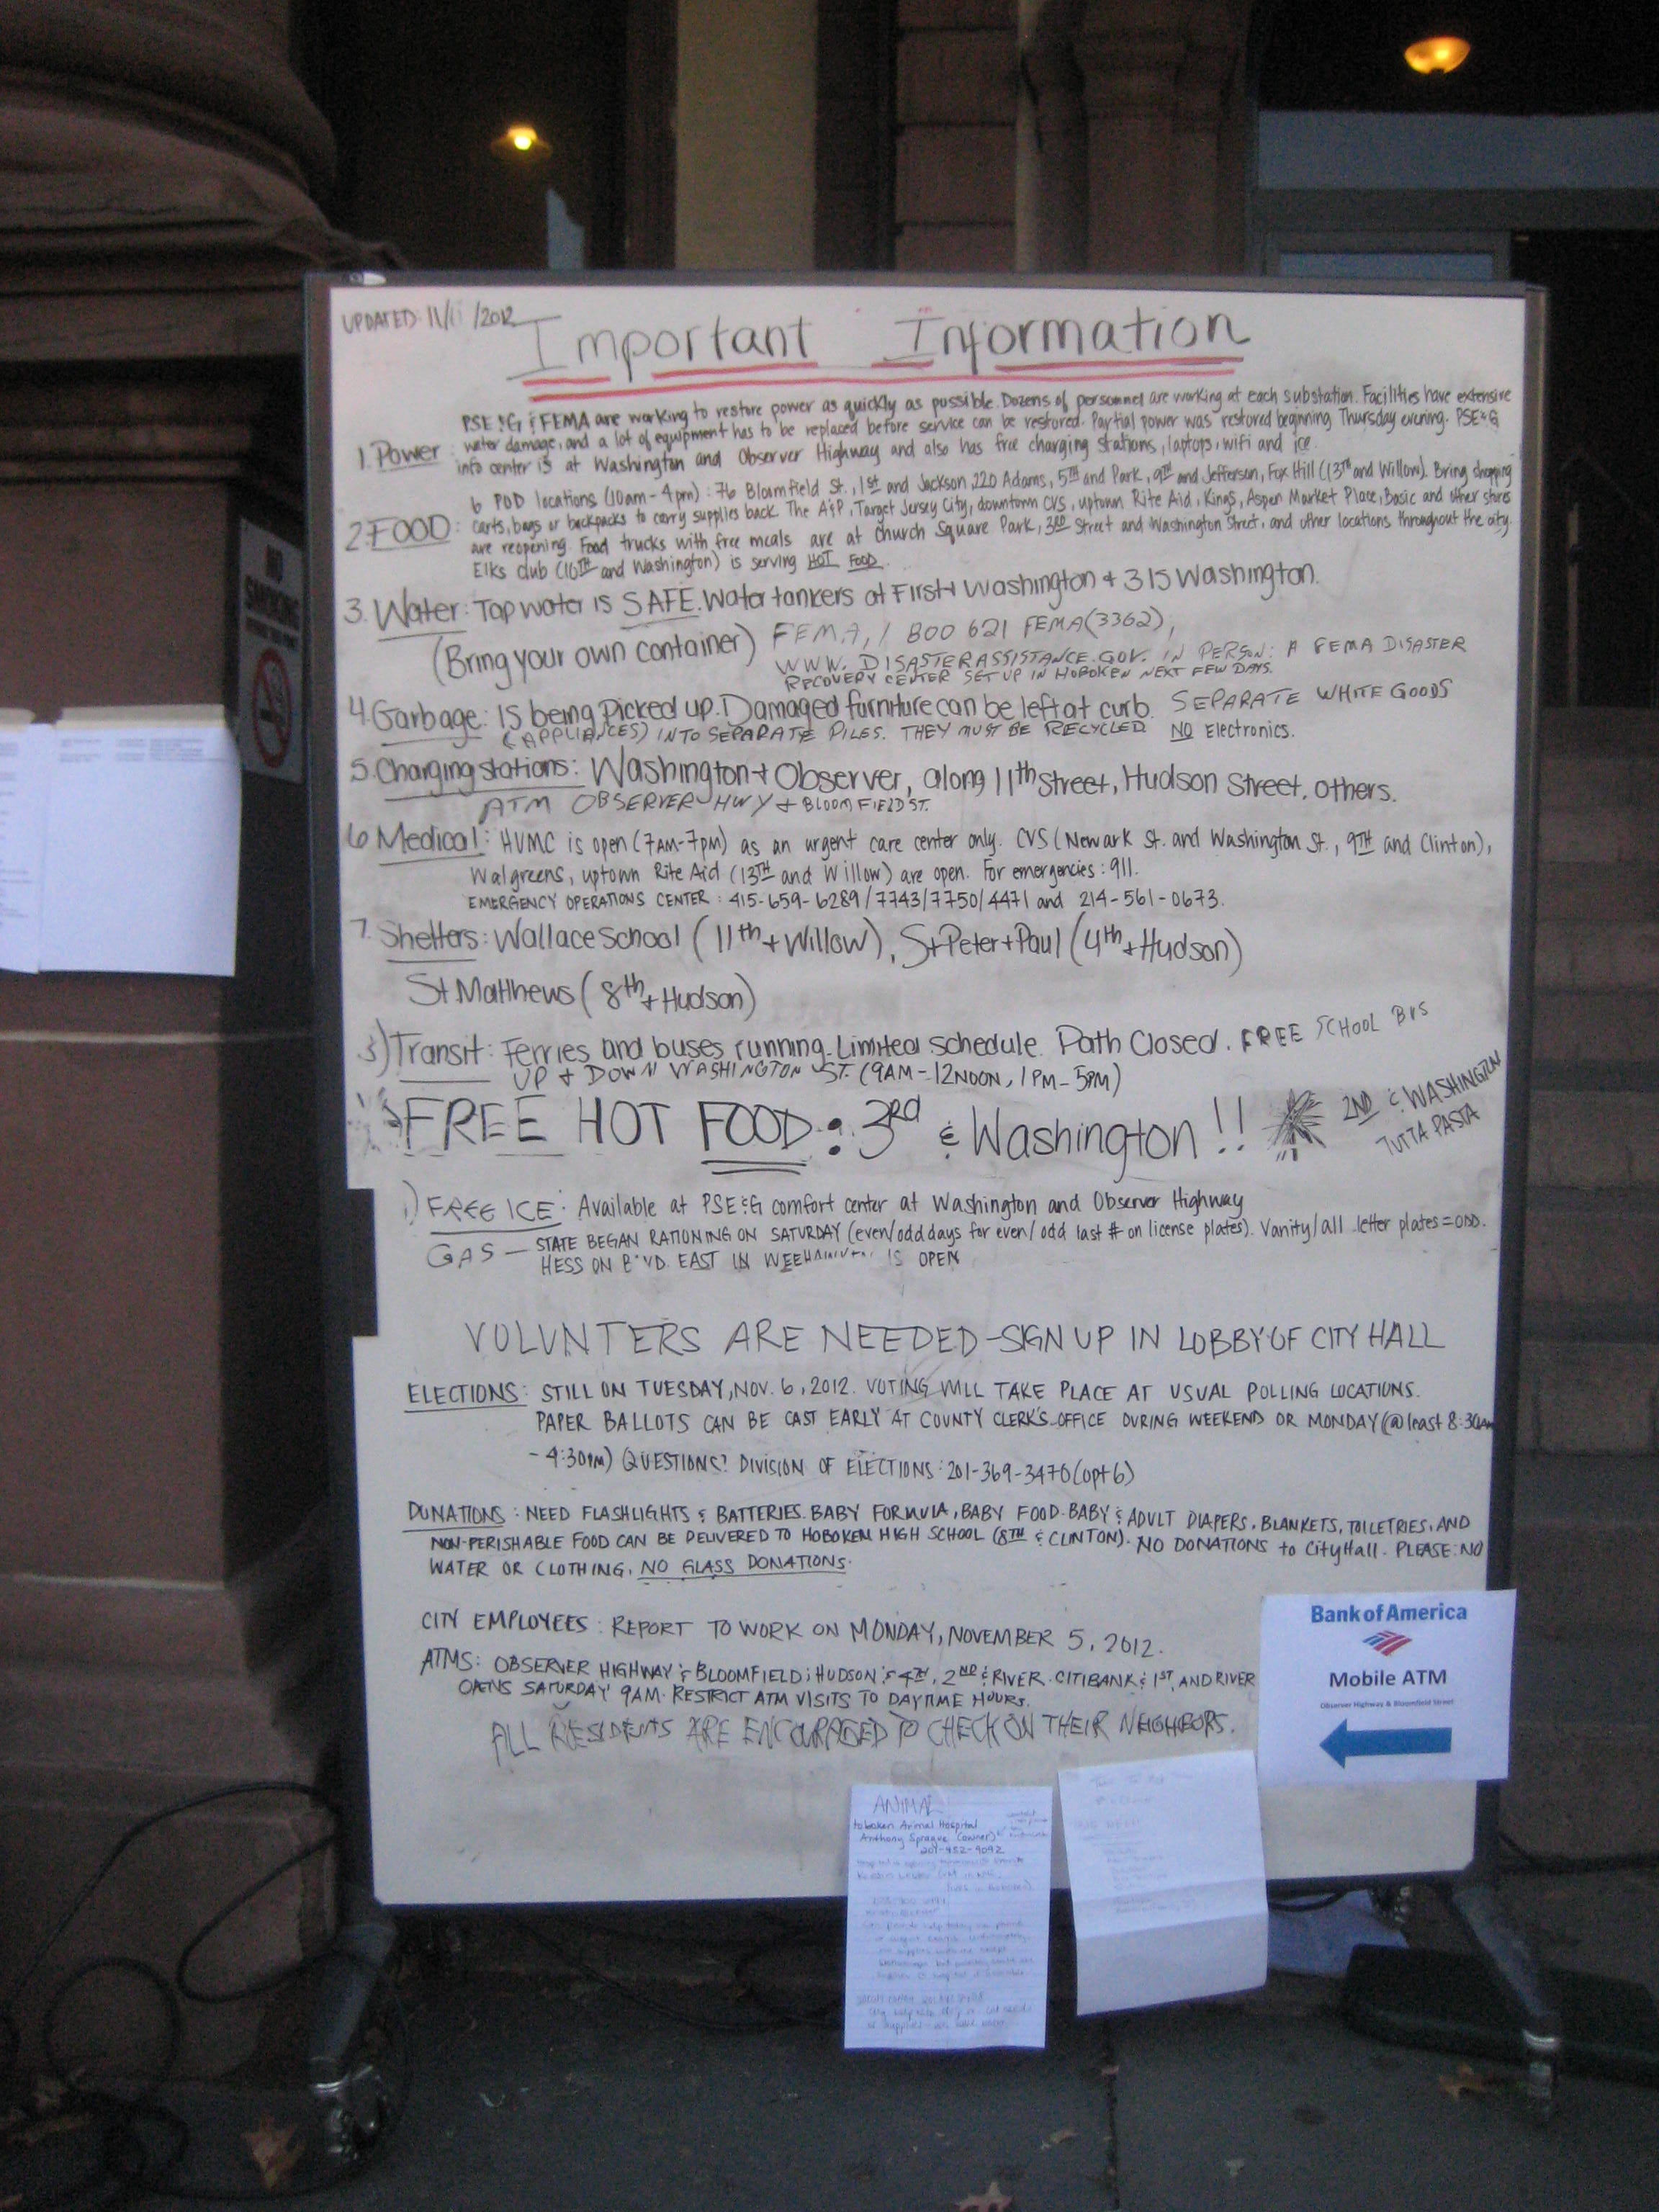 UPDATED: 11/ /2012
Important Information
PSE&G & FEMA are working to restore power as quickly as possible. Dozens of personnel are working at each substation. Facilities have extensive
1. Power: water damage, and a lot of equipment has to be replaced before service can be restored. Partial power was restored beginning Thursday evening. PSE&G
info center is at Washington and Observer Highway and also has free charging stations, laptops, wifi and ice.
6 POD locations (10am-4pm): 76 Bloomfield St., 1st and Jackson, 220 Adams, 5TH and Park, 9TH and Jefferson, Fox Hill (13TH and Willow). Bring shopping
2. FOOD: carts, bags or backpacks to carry supplies back. The A&P, Target Jersey City, downtown CVS, uptown Rite Aid, Kings, Aspen Market Place, Basic and other stores
are reopening. Food trucks with free meals are at Church Square Park, 3RD Street and Washington Street, and other locations throughout the city.
Elks club (10TH and Washington) is serving HOT FOOD.
3. Water: Tap water is SAFE. Water tankers at First + Washington + 315 Washington.
(Bring your own container) FEMA, 1 800 621 FEMA (3362),
WWW. DISASTERASSISTANCE.GOV. IN PERSON: A FEMA DISASTER
RECOVERY CENTER SET UP IN HOBOKEN NEXT FEW DAYS.
4. Garbage: Is being Picked up. Damaged furniture can be left at curb. SEPARATE WHITE GOODS
(APPLIANCES) INTO SEPARATE PILES. THEY MUST BE RECYCLED NO Electronics.
5. Charging stations: Washington + Observer, along 11th Street, Hudson Street, others.
ATM OBSERVER HWY + BLOOMFIELD ST.
6 Medical: HUMC is open (7AM-7PM) as an urgent care center only. CVS (Newark St. and Washington St., 9TH and Clinton),
Walgreens, uptown Rite Aid (13TH and Willow) are open. For emergencies: 911.
EMERGENCY OPERATIONS CENTER: 415-659-6289/7743/7750/4471 and 214-561-0673.
7. Shelters: Wallace School (11th + Willow), St Peter + Paul (4th + Hudson)
St Matthews (8th + Hudson)
8) Transit: Ferries and buses running. Limited schedule. Path Closed. FREE SCHOOL BUS
UP + DOWN WASHINGTON ST. (9AM-12NOON, 1PM-5PM)
FREE HOT FOOD: 3RD & Washington!! 2ND & WASHINGTON
TUTTA PASTA
FREE ICE: Available at PSE&G comfort center at Washington and Observer Highway
GAS — STATE BEGAN RATIONING ON SATURDAY (even/odd days for even/odd last # on license plates). Vanity/all letter plates = ODD.
HESS ON BLVD. EAST IN WEEHAWKEN IS OPEN
VOLUNTERS ARE NEEDED - SIGN UP IN LOBBY OF CITY HALL
ELECTIONS: STILL ON TUESDAY, NOV. 6, 2012. VOTING WILL TAKE PLACE AT USUAL POLLING LOCATIONS.
PAPER BALLOTS CAN BE CAST EARLY AT COUNTY CLERK'S OFFICE DURING WEEKEND OR MONDAY (@ least 8:30am
- 4:30PM) QUESTIONS? DIVISION OF ELECTIONS: 201-369-3470 (opt 6)
DONATIONS: NEED FLASHLIGHTS & BATTERIES. BABY FORMULA, BABY FOOD. BABY & ADULT DIAPERS, BLANKETS, TOILETRIES, AND
NON-PERISHABLE FOOD CAN BE DELIVERED TO HOBOKEN HIGH SCHOOL (8TH & CLINTON). NO DONATIONS to City Hall. PLEASE: NO
WATER OR CLOTHING. NO GLASS DONATIONS.
CITY EMPLOYEES: REPORT TO WORK ON MONDAY, NOVEMBER 5, 2012.
ATMS: OBSERVER HIGHWAY & BLOOMFIELD; HUDSON & 4TH, 2ND & RIVER. CITIBANK & 1ST AND RIVER
OPENS SATURDAY 9AM. RESTRICT ATM VISITS TO DAYTIME HOURS.
ALL RESIDENTS ARE ENCOURAGED TO CHECK ON THEIR NEIGHBORS.
Bank of America
Mobile ATM
Observer Highway & Bloomfield Street
ANIMAL
Hoboken Animal Hospital
Anthony Sprague (owner)
201-952-9092
NO
SMOKING